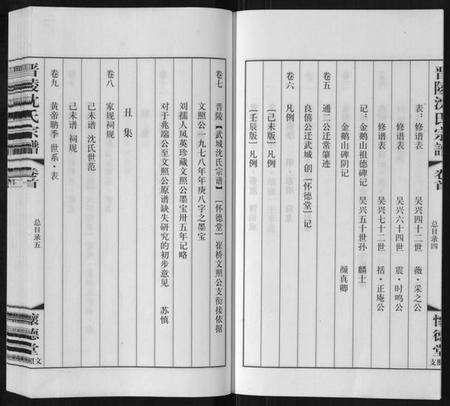 晋陵沈氏宗譜 卷首 总目录四 怀德堂
表：修谱表 吴兴四十二世 薇·采之公
修谱表 吴兴六十四世 震·时鸣公
修谱表 吴兴七十二世 括·正庵公
记：金鹅山祖德碑记 吴兴五十世孙 麟士
金鹅山碑阴记 颜真卿
卷五
通二公迁常肇迹
良僖公迁武城 创【怀德堂】记
卷六 凡例
【己未版】凡例
【壬辰版】凡例
卷七 晋陵【武城沈氏宗谱】【怀德堂】崔桥文照公支衔接依据
文照公一九七八年年庚八字之墨宝
刘孺人凤英珍藏文照公墨宝卅五年记略
对于兆瑞公至文照公原谱缺失研究的初步意见 苏慎
丑集
卷八 家规祠规
己未谱 沈氏世范
己未谱 祠规
卷九 黄帝鹏季 世系·表
晋陵沈氏宗譜 卷首 总目录五 懷德堂 文照支